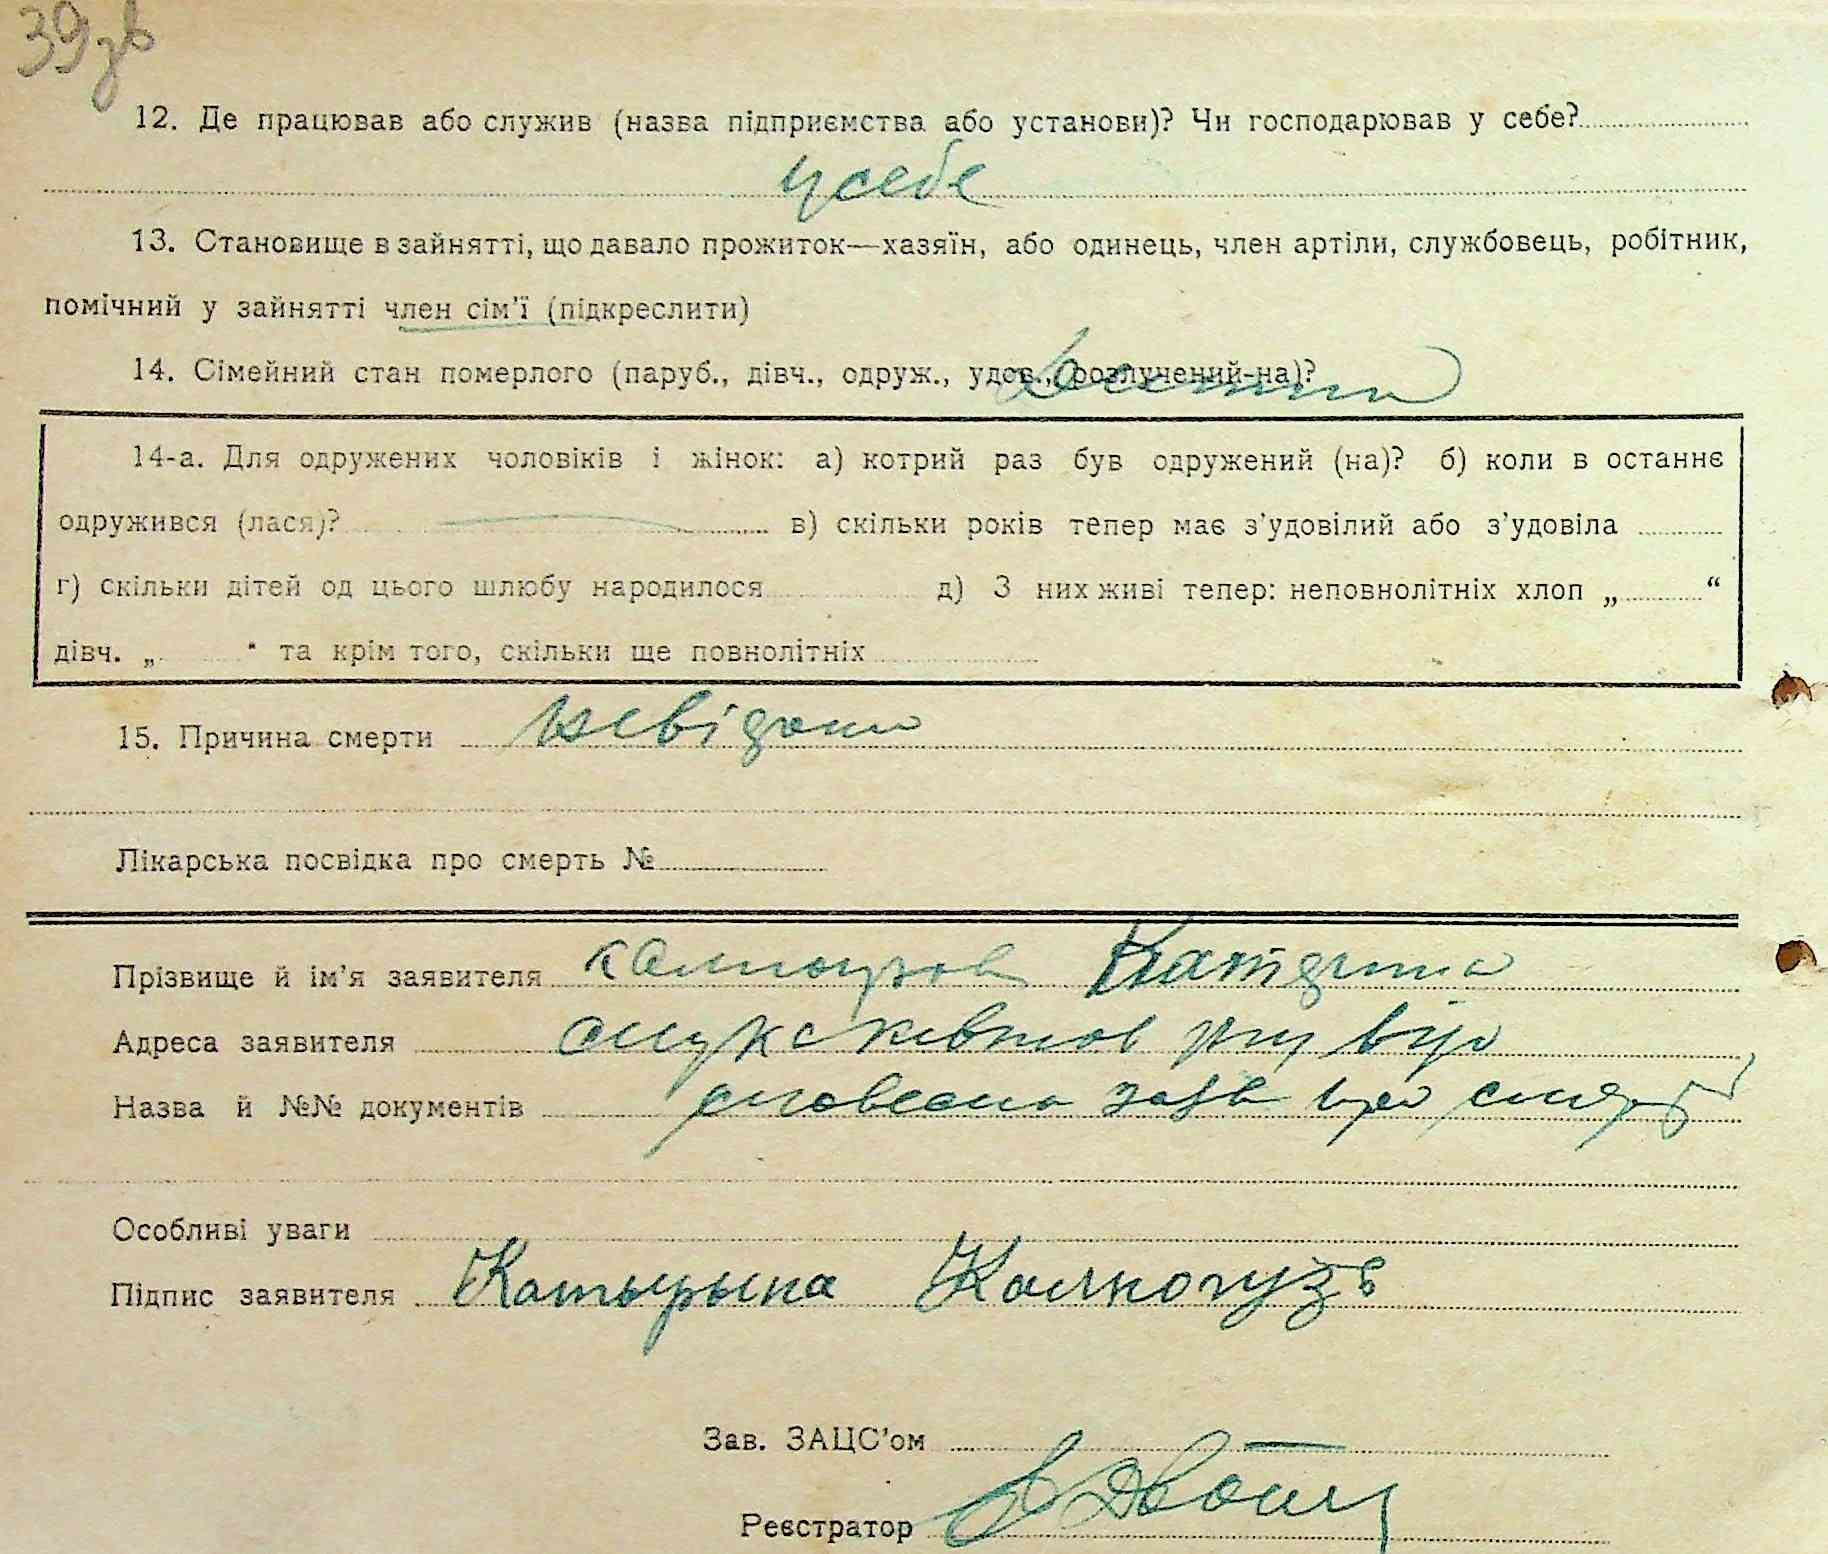 39зв
12. Де працював або служив (назва підприємства або установи)? Чи господарював у себе?
у себе
13. Становище в зайнятті, що давало прожиток—хазяїн, або одинець, член артіли, службовець, робітник,
помічний у зайнятті член сім'ї (підкреслити)
14. Сімейний стан померлого (паруб., дівч., одруж., удов., розлучений-на)?
14-а. Для одружених чоловіків і жінок: а) котрий раз був одружений (на)? б) коли в останнє
одружився (лася)? в) скільки років тепер має з'удовілий або з'удовіла
г) скільки дітей од цього шлюбу народилося д) З них живі тепер: неповнолітніх хлоп „ “
дівч. „ “ та крім того, скільки ще повнолітніх
15. Причина смерти невідома
Лікарська посвідка про смерть №
Прізвище й ім'я заявителя Катерина
Адреса заявителя
Назва й №№ документів словесна заява про смерть
Особливі уваги
Підпис заявителя Катырына Колногузъ
Зав. ЗАЦС'ом
Реєстратор